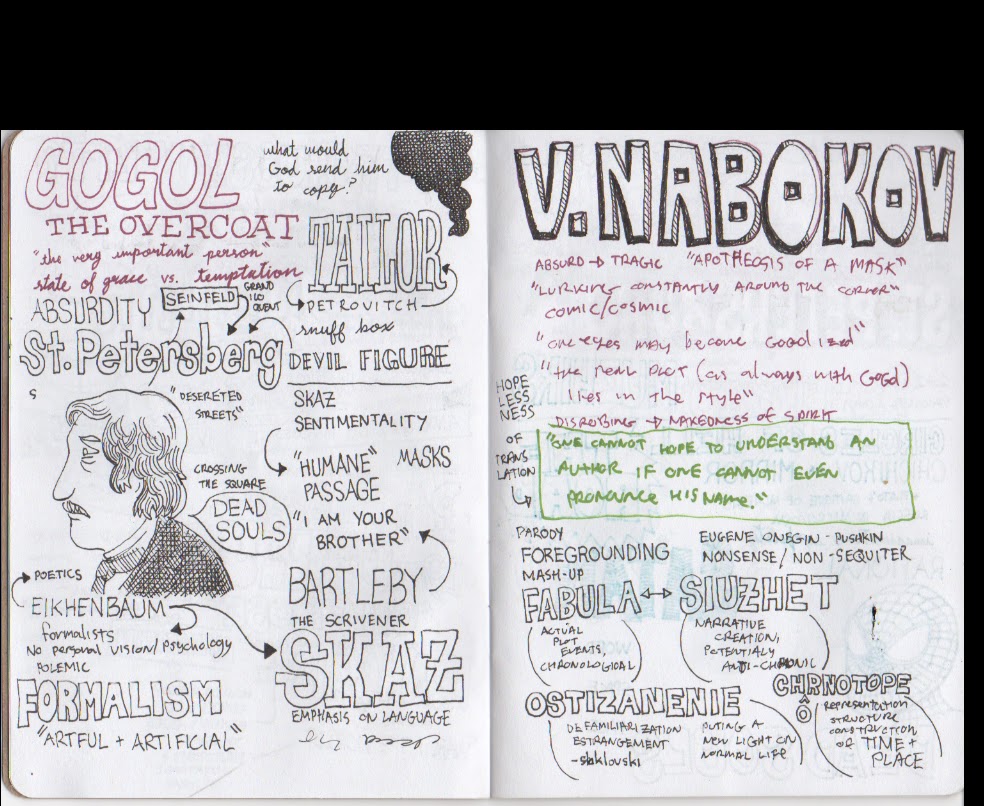 GOGOL
THE OVERCOAT
"the very important person"
state of grace vs. temptation
what would
God send him
to copy?
TAILOR
PETROVITCH
snuff box
DEVIL FIGURE
ABSURDITY
SEINFELD
GRAND
ILO
QUENT
St. Petersberg
S
"DESERETED
STREETS"
CROSSING
THE SQUARE
DEAD
SOULS
SKAZ
SENTIMENTALITY
"HUMANE" MASKS
PASSAGE
"I AM YOUR
BROTHER"
BARTLEBY
THE SCRIVENER
POETICS
EIKHENBAUM
formalists
No personal vision/psychology
POLEMIC
FORMALISM
"ARTFUL + ARTIFICIAL"
SKAZ
EMPHASIS ON LANGUAGE
V. NABOKOV
ABSURD → TRAGIC "APOTHEOSIS OF A MASK"
"LURKING CONSTANTLY AROUND THE CORNER"
COMIC/COSMIC
"one eyes may become Gogolized"
"the real plot (as always with Gogol)
lies in the style"
DISROBING → NAKEDNESS OF SPIRIT
HOPE
LESS
NESS
OF
TRANS
LATION
"ONE CANNOT HOPE TO UNDERSTAND AN
AUTHOR IF ONE CANNOT EVEN
PRONOUNCE HIS NAME."
PARODY
FOREGROUNDING
MASH-UP
EUGENE ONEGIN - PUSHKIN
NONSENSE/NON-SEQUITER
FABULA ↔ SIUZHET
ACTUAL
PLOT
EVENTS,
CHRONOLOGICAL
NARRATIVE
CREATION,
POTENTIALY
ANTI-CHRONIC
OSTIZANENIE
DEFAMILIARIZATION
ESTRANGEMENT
-shklovski
PUTING A
NEW LIGHT ON
NORMAL LIFE
CHRNOTOPE
O
representation
STRUCTURE
construction
OF TIME +
PLACE